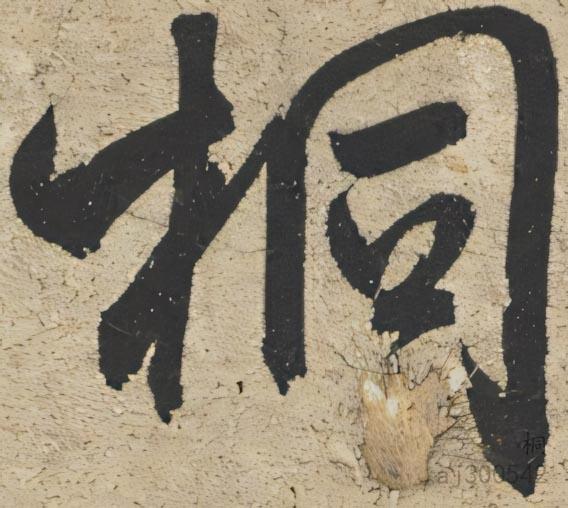 桐
桐
aj300542